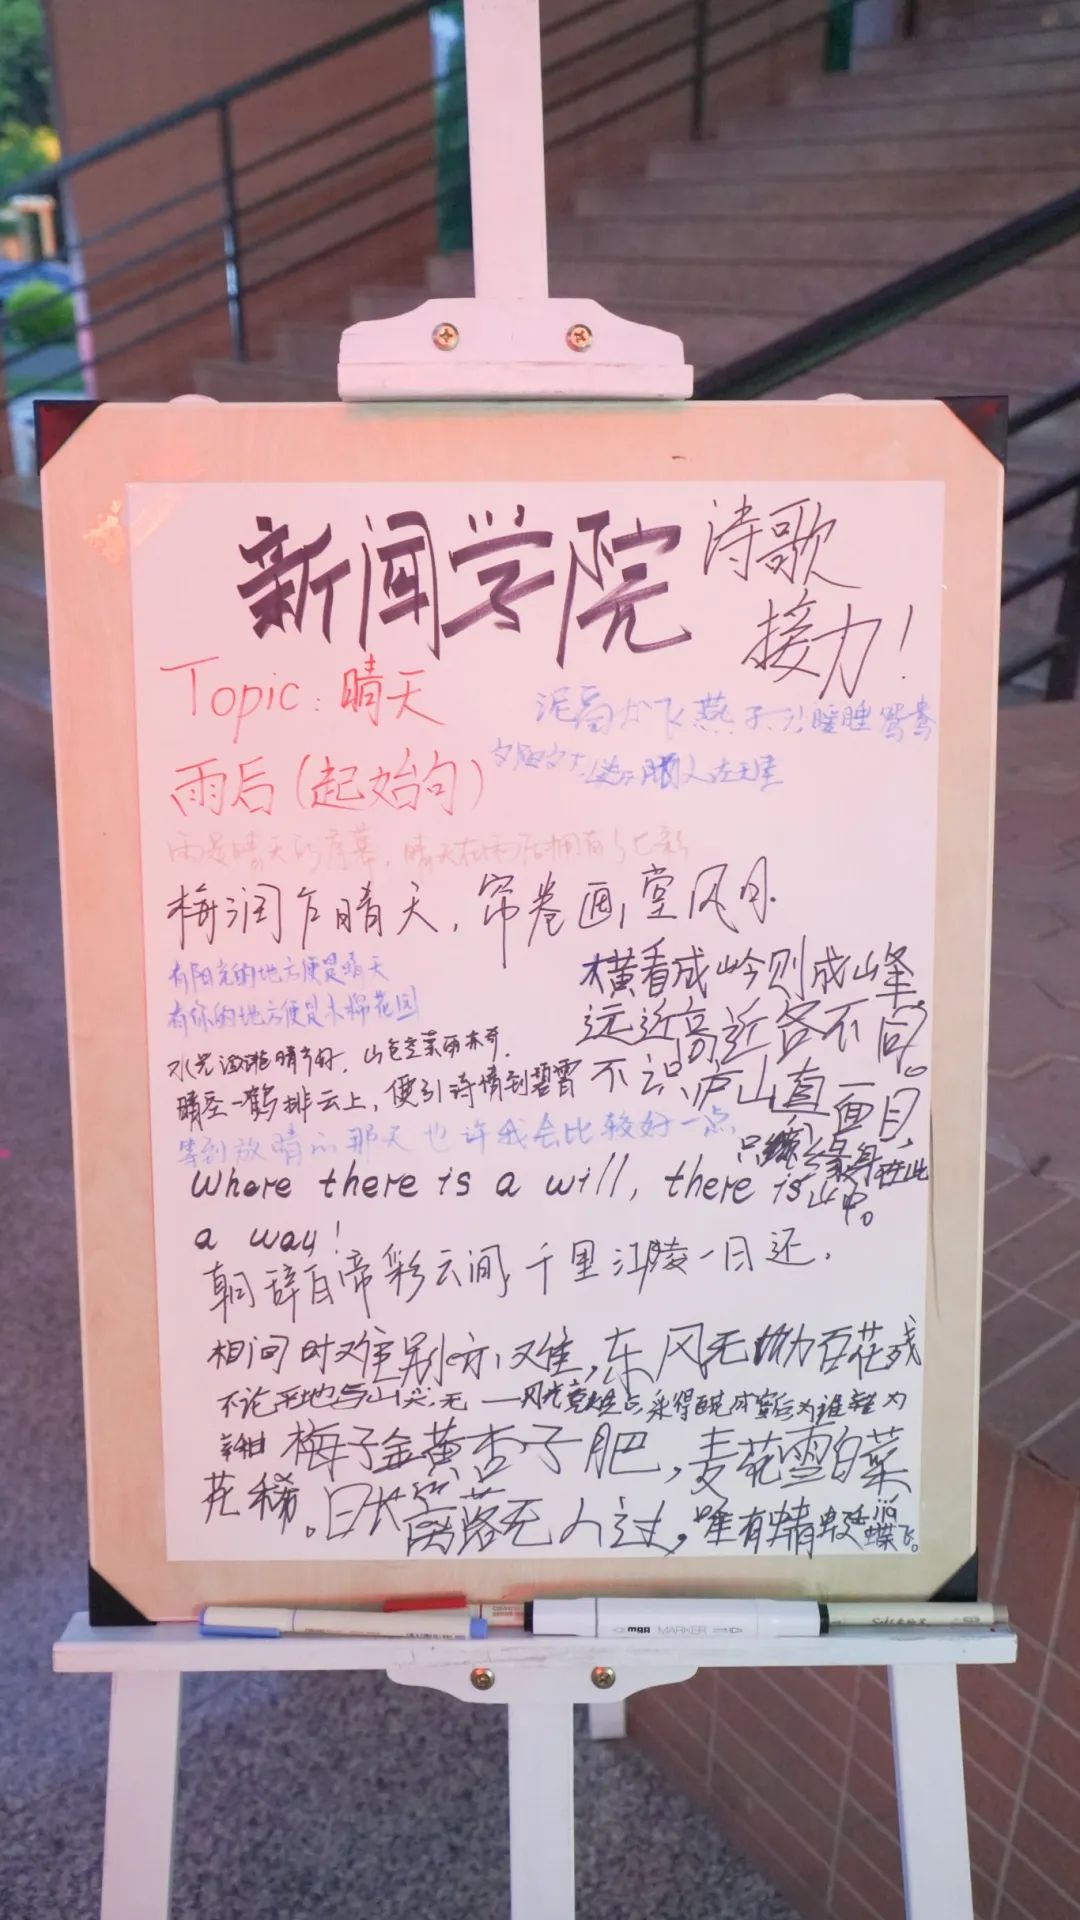 新闻学院
诗歌
接力!
Topic: 晴天
雨后(起始句)
泥 飞燕子 暖睡鸳鸯
夕阳
雨是晴天的序幕,晴天在雨后拥有
梅润乍晴天,帘卷画堂风月.
有阳光的地方便是晴天
有你的地方便是木棉花园
水光潋滟晴方好,山色空蒙雨亦奇.
晴空一鹤排云上,便引诗情到碧霄
等到放晴的那天也许我会比较好一点
横看成岭则成峰,
远近高近各不同。
不识庐山真面目,
只缘身在此
山中。
Where there is a will, there is
a way!
朝辞白帝彩云间,千里江陵一日还.
相间时难别亦难,东风无力百花残
不论平地与山尖,无 风光竟 占,采得百花成蜜后为谁辛为
梅子金黄杏子肥,麦花雪白菜
花稀。日长篱落无人过,唯有蜻蜓
蝶飞。
MARKER